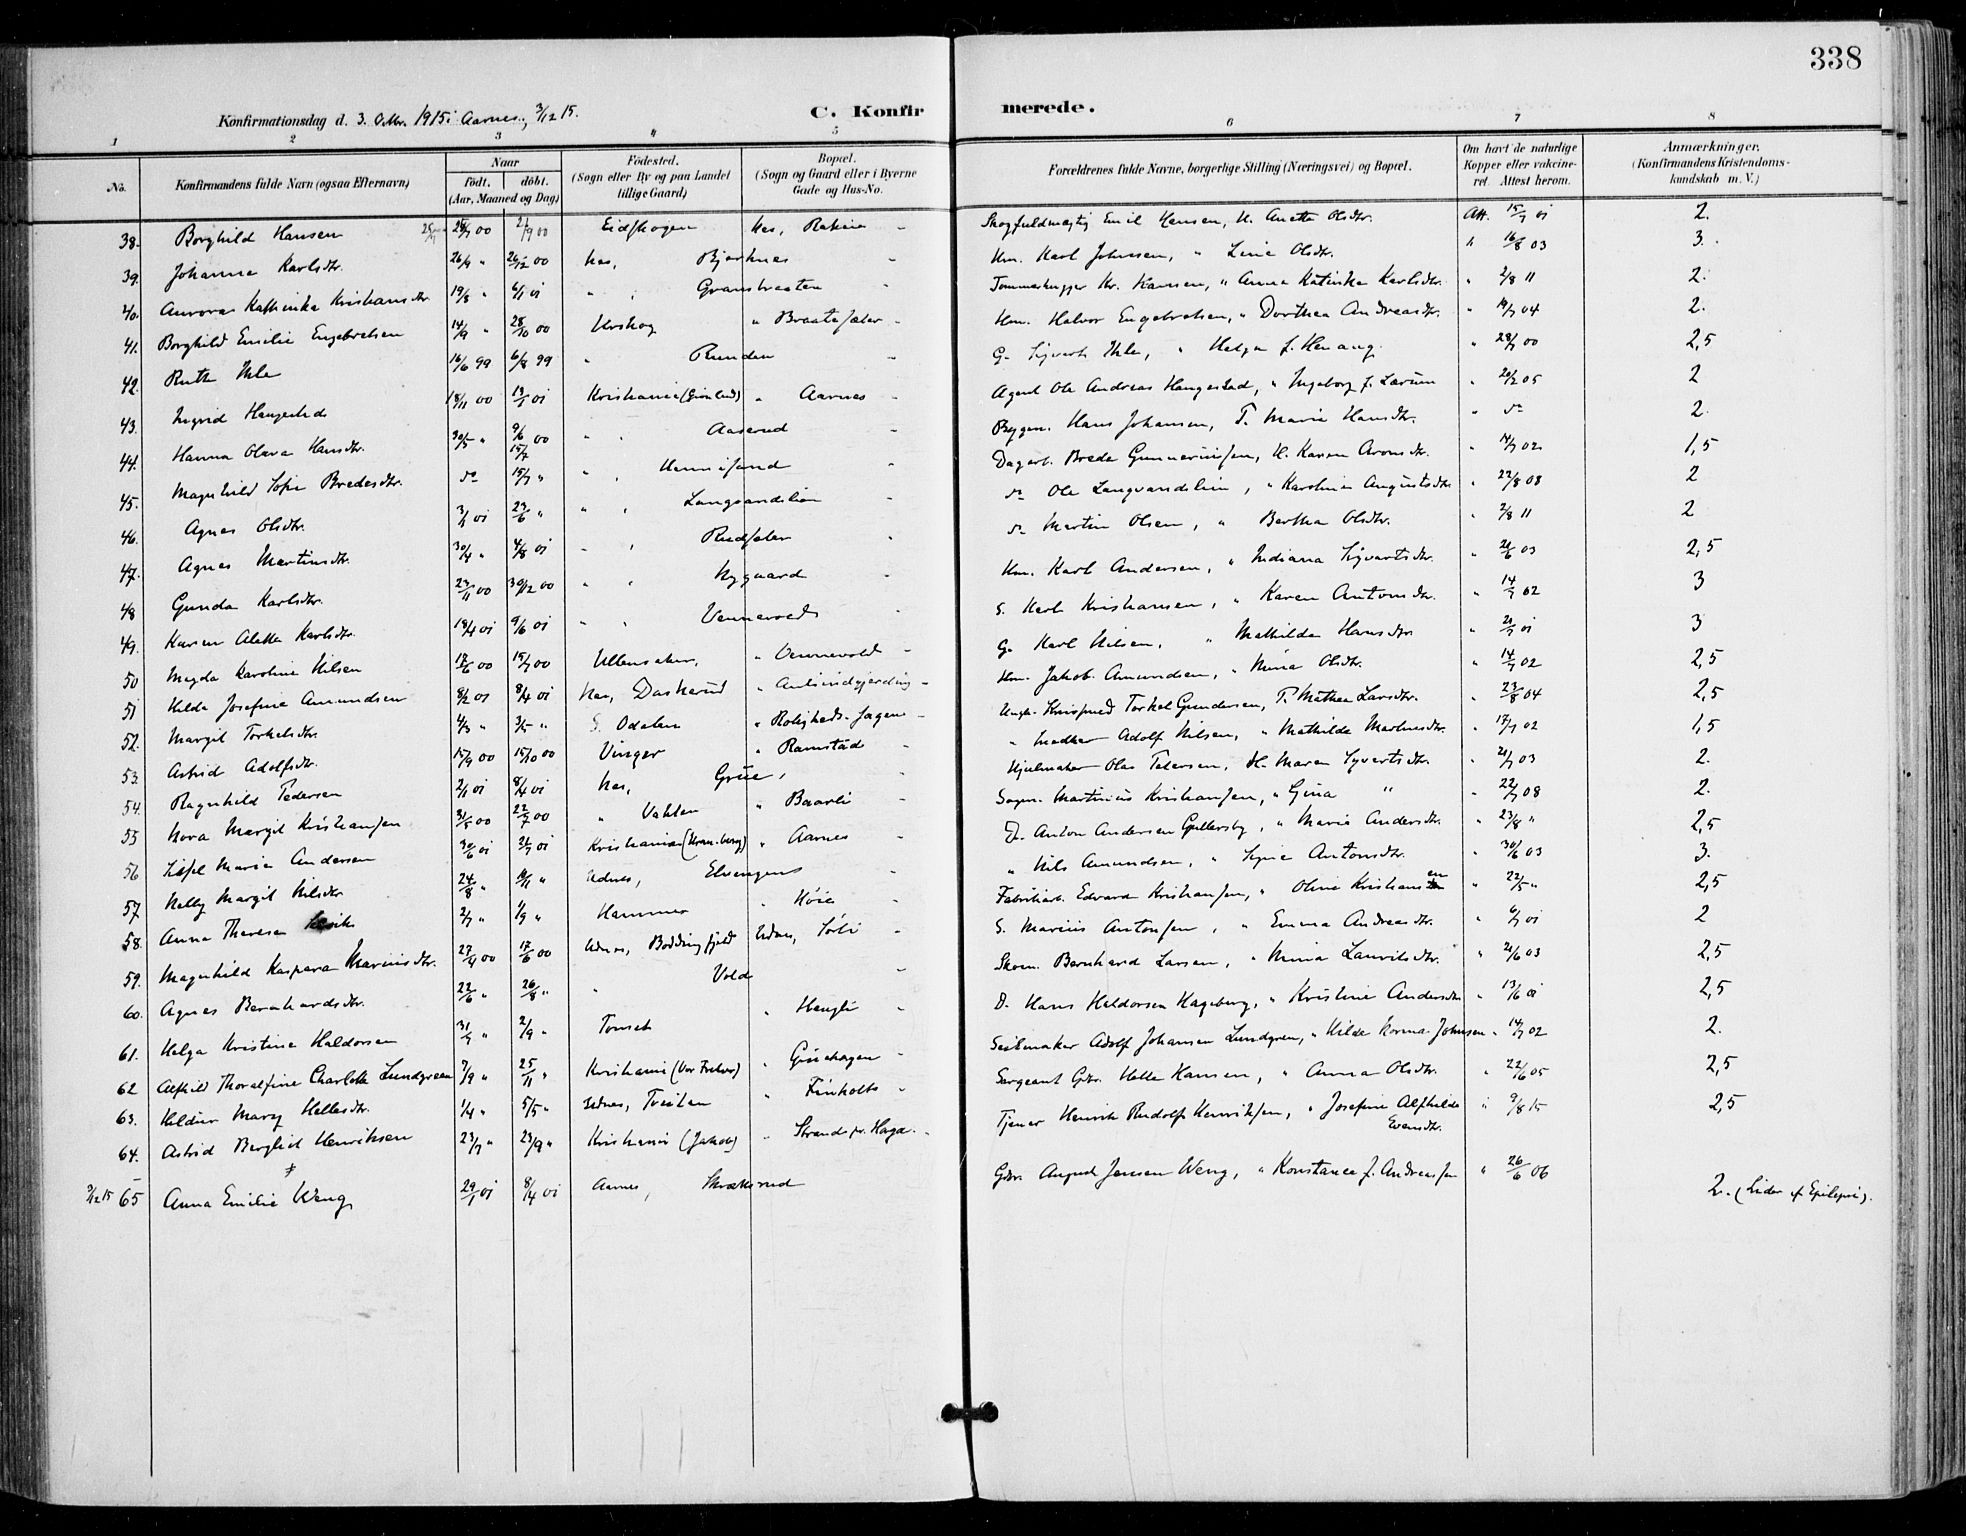 338
Konfirmationsdag d. 3. Oktr. 1915 i Aarnes, 3/12 15.
C. Konfirmerede.
1 2 3 4 5 6 7 8
No. Konfirmandens fulde Navn (ogsaa Efternavn) Naar født. døbt. (Aar, Maaned og Dag) Fødested. (Sogn eller By og paa Landet tillige Gaard) Bopæl. (Sogn og Gaard eller i Byerne Gade og Hus-No. Forældrenes fulde Navne, borgerlige Stilling (Næringsvei) og Bopæl. Om havt de naturlige Kopper eller vakcineret. Attest herom. Anmærkninger. (Konfirmandens Kristendomskundskab m. V.)
38. Borghild Hansen 00 2/9 00 Eidskogen Nes, Emil Hansen, H. Anette Olsdtr. Att. 15/7 01 2.
39. Johanne Karlsdtr. 26/9 " 26/12 00 Nes, Bjerknes Hm. Karl Johnsen, " Line Olsdtr. " 16/8 03 3.
40. Aurora Kathinka Kristiansdtr. 19/8 " 6/1 01 " Granbraaten Tømmerhugger Kr. Hansen, " Anna Katinka Karlsdtr. " 2/8 11 2.
41. Borghild Emilie Engebretsen 14/9 " 28/10 00 Urskog " Hm. Halvor Engebretsen, " Dorthea Andreasdtr. " 19/7 04 2.
42. Ruth Ihle 16/6 99 6/8 99 " Runden G. Syvert Ihle, " Helga f. Henaug " 28/7 00 2,5
43. Ingrid Haugestad 18/11 00 13/1 01 Kristiania (Grønland) " Aarnes Agent Ole Andreas Haugestad, " Ingeborg f. Lærum " 20/2 05 2
44. Hanna Olava Hansdtr. 30/5 " 9/6 00 " Aaserud Bygm. Hans Johansen, F. Marie Hansdtr. " do 2.
45. Magnhild Sofie Bredesdtr. do 15/7 " " Dagarb. Brede Gunneriussen, H. Karen Aronsdtr. " 14/7 02 1,5
46. Agnes Olsdtr. 3/1 01 23/6 " " Langvandslien do Ole Langvandslien, " Karoline Augustsdtr. " 22/8 08 2
47. Agnes Martinsdtr. 30/4 " 4/8 01 " do Martin Olsen, " Bertha Olsdtr. " 2/8 11 2
48 Gunda Karlsdtr. 23/11 00 30/12 00 " Nygaard Hm. Karl Andersen, " Indiana Syvertsdtr. " 21/6 03 2,5
49. Karen Alette Karlsdtr. 18/4 01 9/6 01 " Vennevold S. Karl Kristiansen, " Karen Antonsdtr. " 14/7 02 3
50 Magda Karoline Nilsen 17/6 00 15/7 00 Ullensaker, " Vennevold G. Karl Nilsen, " Mathilde Hansdtr. " 21/7 01 3
51 Hilda Josefine Amundsen 8/2 01 8/4 01 Nes, Daskerud " Hm. Jakob Amundsen, " Mina Olsdtr. " 14/7 02 2,5
52. Margit Torkelsdtr. 4/3 " 3/5 " S. Odalen " Torkel Gundersen, F. Mathea Larsdtr. " 23/8 04 2,5
53. Astrid Adolfsdtr. 15/9 00 15/10 00 Vinger " Ramstad " Adolf Nilsen, " Mathilde Martinsdtr. " 17/7 02 1,5
54. Ragnhild Pedersen 2/1 01 8/4 01 Nes, Grue, Hjulmaker Olas Petersen, H. Maren Syvertsdtr. " 21/7 03 2.
55 Nora Margit Kristiansen 31/5 00 22/7 00 " Vakten " Baarli Martinius Kristiansen, " Gina " " 22/7 08 2.
56 Marie Andersen 30/6 01 21/7 01 Kristiania " Aarnes D. Anton Andersen Gullersby, " Marie Andersdtr. " 23/8 " 2,5
57. Nelly Margit Nilsdtr. 24/8 " " Udnes, Elvengens " Nils Amundsen, " Signe Antonsdtr. " 30/6 03 3.
58. Anna Theresa 2/7 " 1/9 " Hammer " Høie Fabrikarb. Edvard Kristiansen, " Oline Kristiansen " 22/5 " 2,5
59. Magnhild Kaspara Mariusdtr. 27/4 00 17/6 00 Udnes, Boddingfjeld Udnes, Sørli S. Marius Antonsen, " Emma Andreasdtr. " 6/7 01 2
60. Agnes Bernhardsdtr. 22/6 " 26/8 " " Vold Skom. Bernhard Larsen, " Mina Lauritsdtr. " 21/6 03 2,5
61. Helga Kristine Haldorsen 31/7 " 2/9 " Tomset " Haugli D. Hans Haldorsen Hageberg, " Kristine Andersdtr " 13/6 01 2,5
62 Alfhild Thoralfine Charlotte Lundgreen 7/9 " 25/11 " Kristiania (Vor Frelser) " Gruehagen Seilmaker Adolf Johansen Lundgren, " Hilda Norma Johnsen " 14/7 02 2.
63. Hildur Mary Hellesdtr. 1/4 " 5/5 " Udnes, Tveiten " Finholts Sergeant Gbr. Helle Hansen, " Anna Olsdtr. " 22/6 05 2,5
64. Astrid Bergliot Henriksen 23/7 " 23/9 " Kristiania (Jakob) " Strand pr. Haga. Tjener Henrik Rudolf Henriksen, " Josefine Alfhilde Evensdtr. " 9/8 15 2,5
3/12 15 65 Anna Emilie Weng 29/1 01 8/4 01 Aarnes, Skrækerud Gbr. August Jensen Weng, " Konstance f. Andreassen " 26/6 06 2. (Lider af Epilepsi).